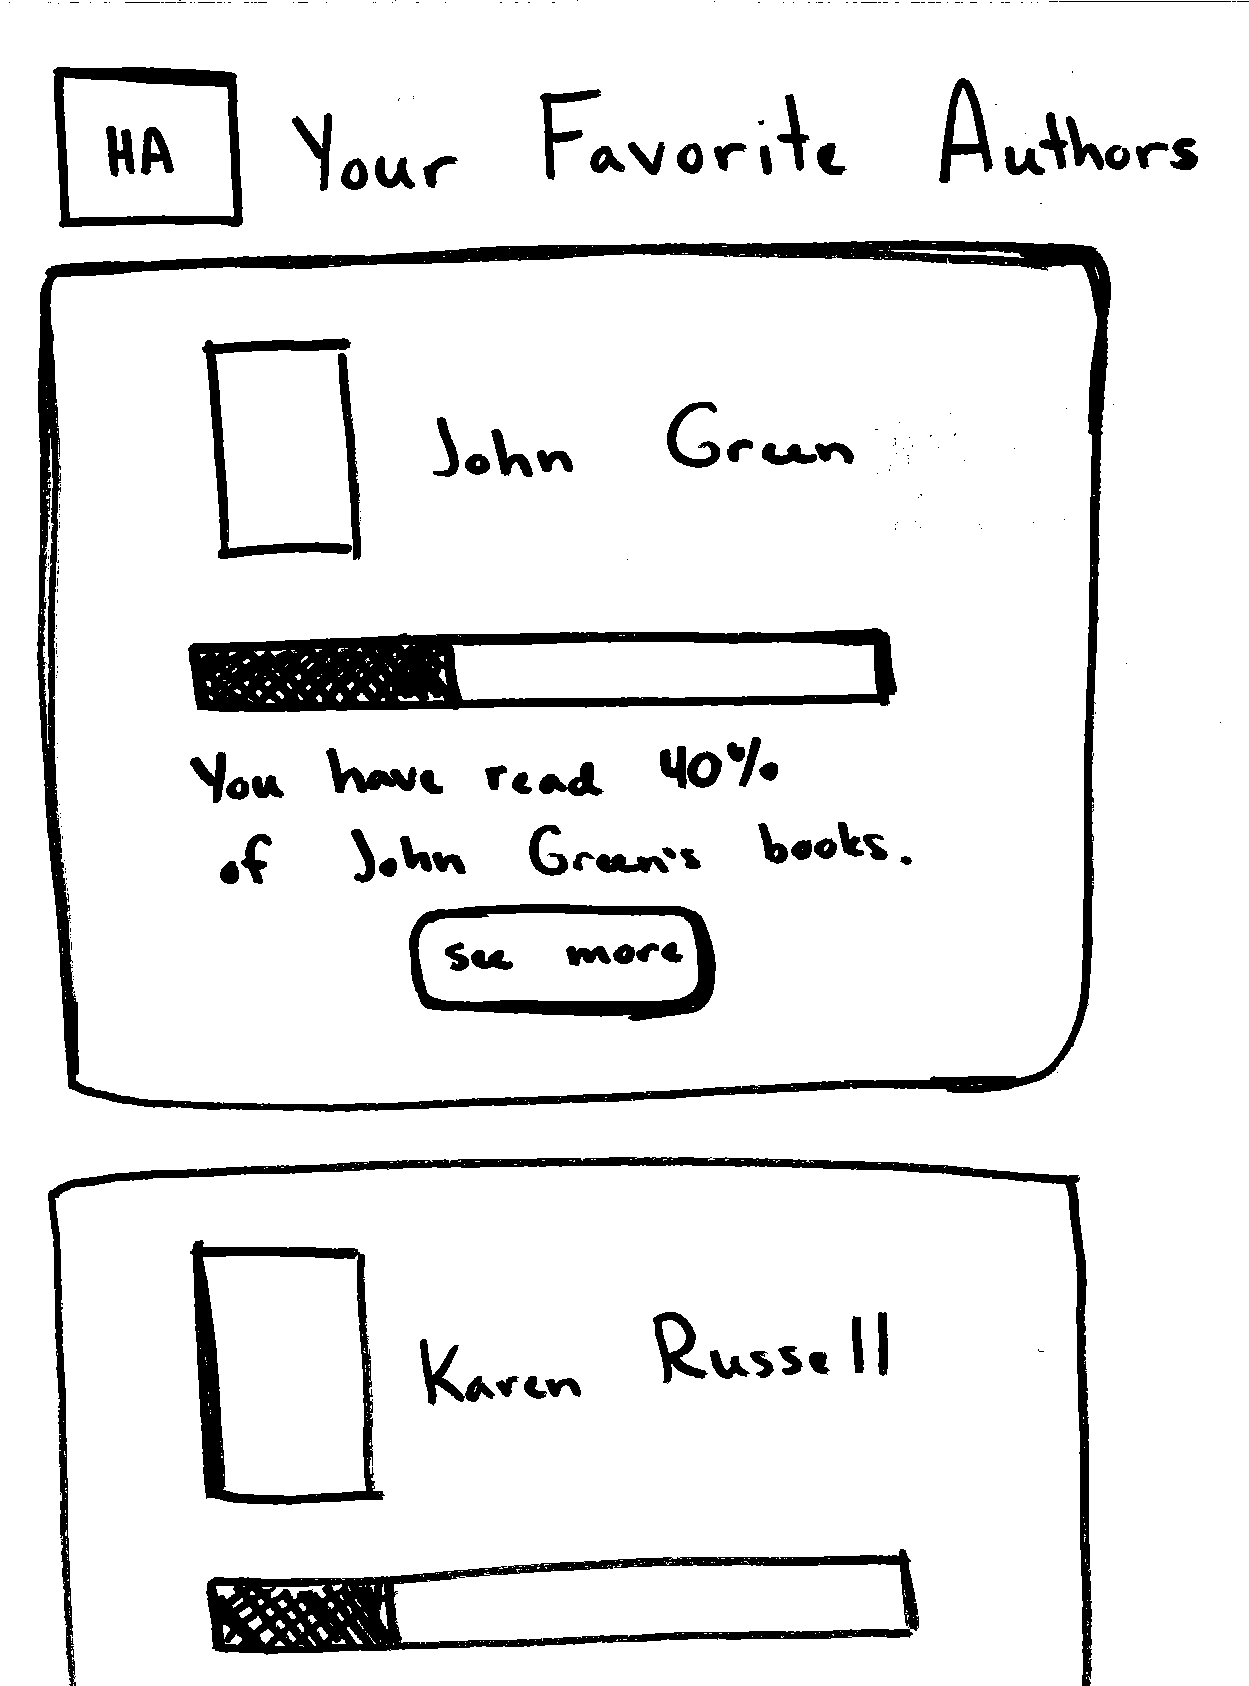 HA Your Favorite Authors
John Green
You have read 40%
of John Green's books.
see more
Karen Russell